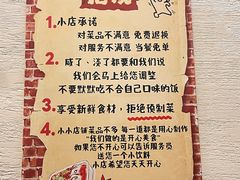 1.小店承诺
对菜品不满意 免费退换
对服务不满意 当餐免单
2.咸了、淡了都要和我们说
我们会马上给您调整
不要默默吃不合自己口味的饭
3.享受新鲜食材，拒绝预制菜
4.小小店铺菜品不多 每一道都是用心制作
“我们做的是开心美食”
如果您不开心可以告诉服务员
送您一个小饮料
小店希望您天天开心